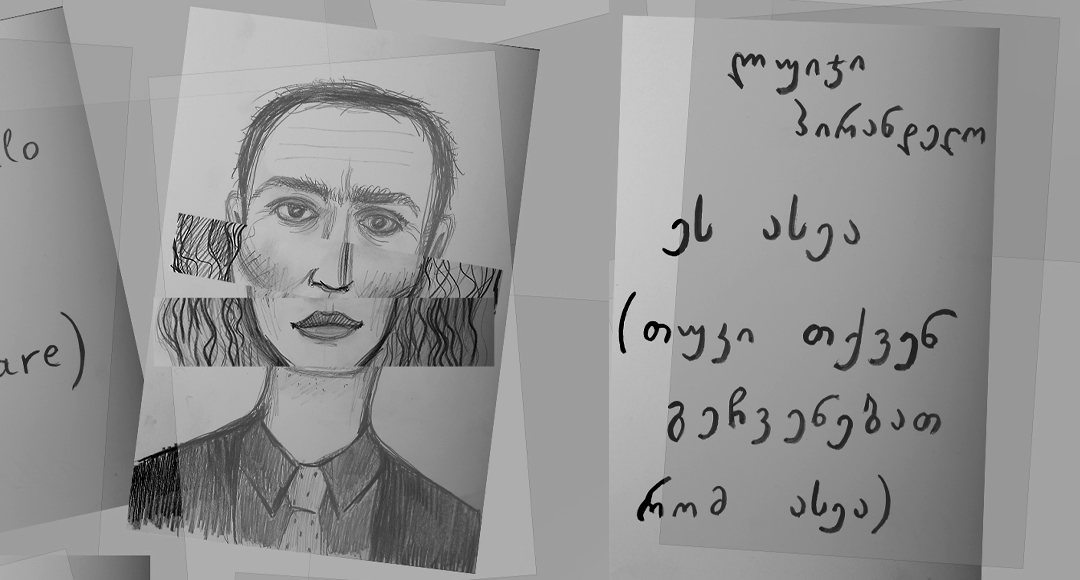 lo
are)
ლუიჯი
პირანდელო
ეს ასეა
(თუკი თქვენ
გეჩვენებათ
რომ ასეა)